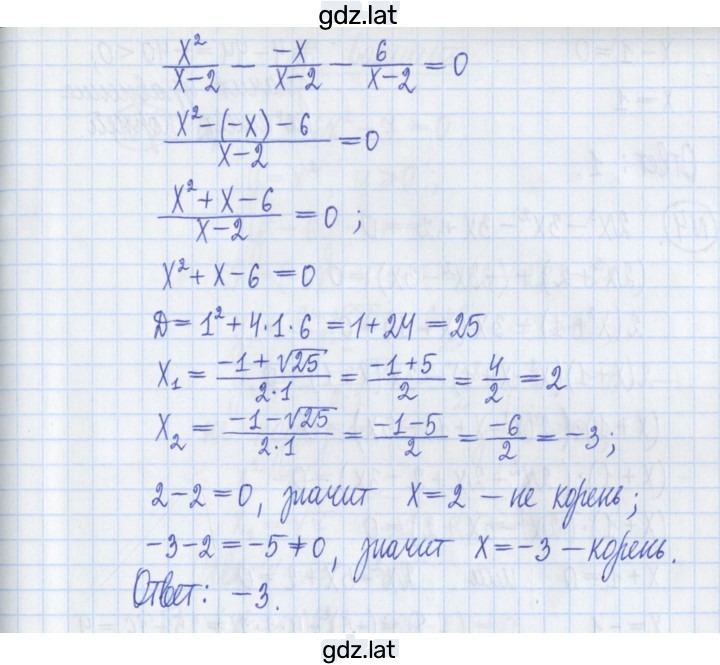 gdz.lat
x²/(x-2) - -x/(x-2) - 6/(x-2) = 0
(x²-(-x)-6)/(x-2) = 0
(x²+x-6)/(x-2) = 0 ;
x²+x-6 = 0
Д = 1²+4·1·6 = 1+24 = 25
x₁ = (-1+√25)/(2·1) = (-1+5)/2 = 4/2 = 2
x₂ = (-1-√25)/(2·1) = (-1-5)/2 = -6/2 = -3 ;
2-2=0, значит x=2 – не корень;
-3-2=-5≠0, значит x=-3 – корень.
Ответ: -3.
gdz.lat